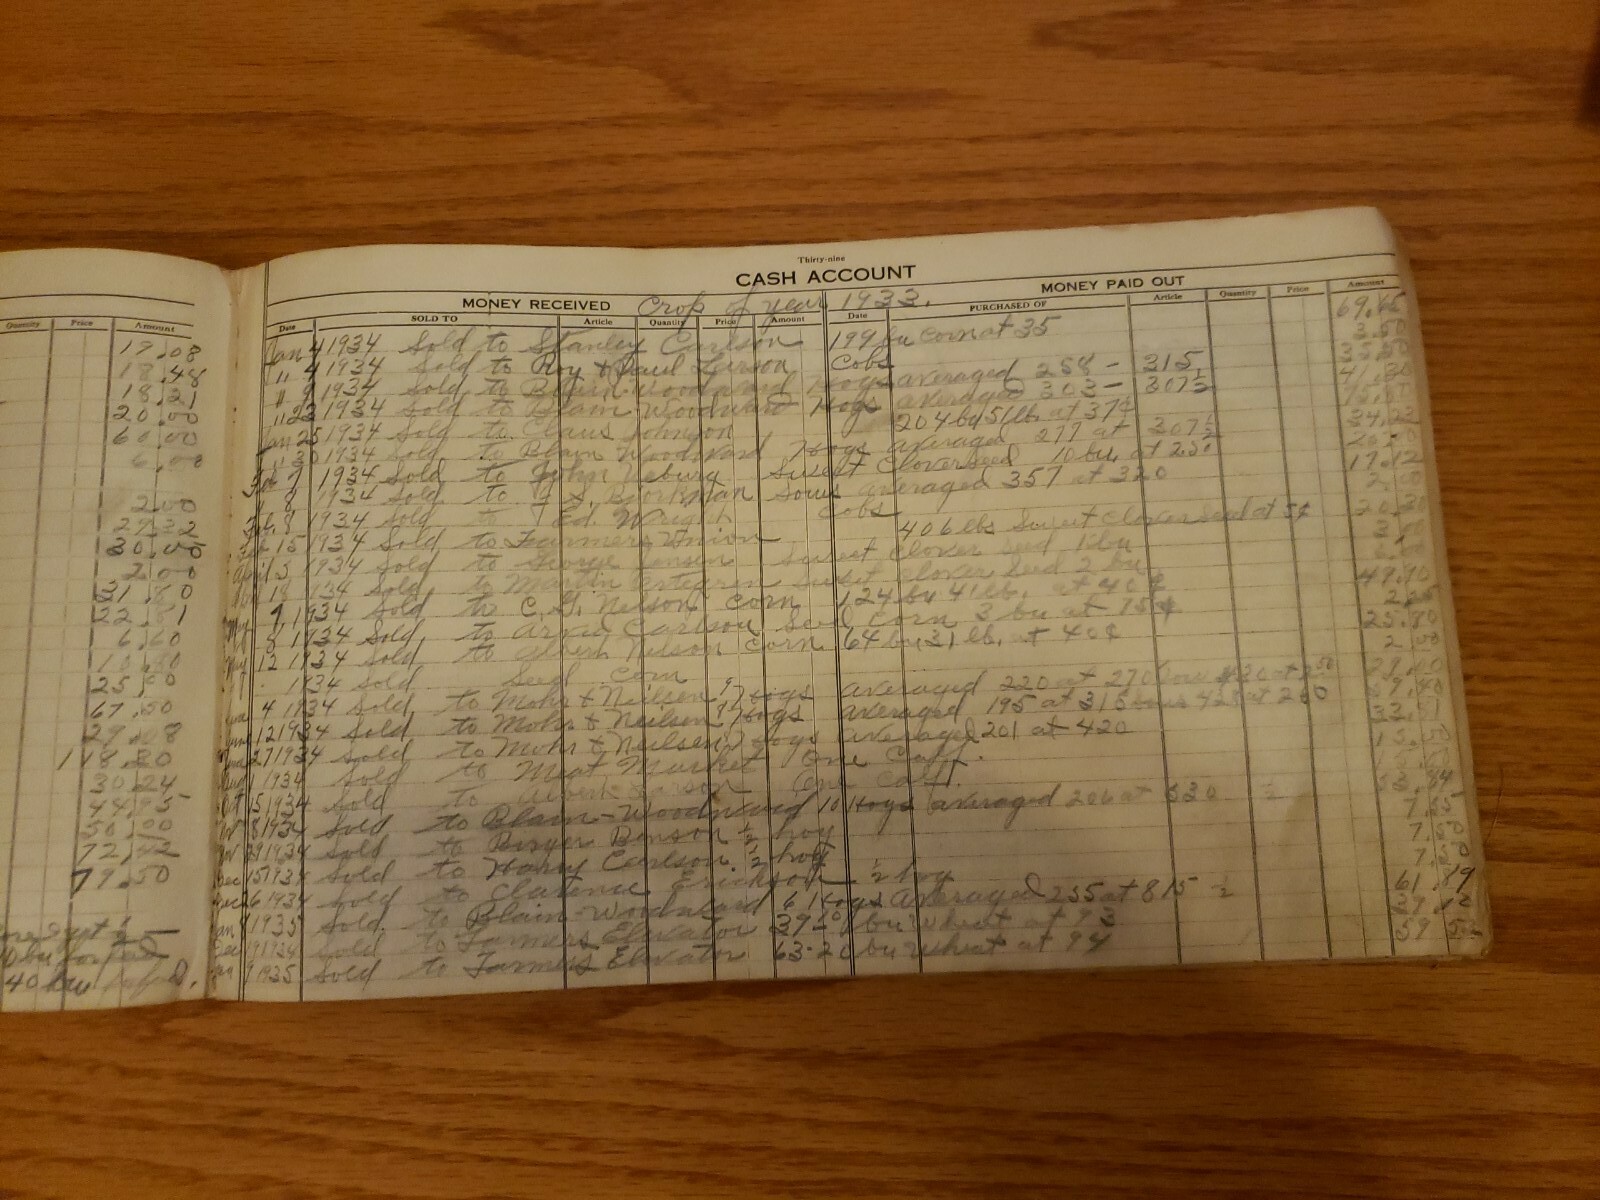 Quantity Price Amount
17.08
18.48
18.21
20.00
60.00
6.08
2.00
29.32
30.00
2.00
31.80
22.81
6.60
10.80
25.00
67.50
29.08
118.80
30.24
44.95
30.00
72.42
79.50
40 bu
Thirty-nine
CASH ACCOUNT
MONEY RECEIVED Crop of year 1933. MONEY PAID OUT
Date SOLD TO Article Quantity Price Amount Date PURCHASED OF Article Quantity Price Amount
Jan 4 1934 Sold to Stanley Carlson 199 bu corn at 35 69.65
" 4 1934 Sold to Roy & Paul Larson Cobs 3.50
" 9 1934 Sold to Blain Woodward Hogs averaged 258 - 315
" 23 1934 Sold to Blain Woodward Hogs averaged 303 - 307½ 41.30
Jan 25 1934 Sold to Claus Johnson 204 bu 51 lb. at 37¢
" 30 1934 Sold to Blain Woodward Hogs averaged 277 at 307½ 34.22
7 1934 Sold to John Seburg Sweet Clover seed 10 bu. at 250
8 1934 Sold to Bjorkman Sows averaged 357 at 320 17.12
Feb. 8 1934 Sold to Ed. Wright Cobs 2.00
15 1934 Sold to Farmers Union 406 lbs Sweet Clover Seed at 5¢ 20.30
April 3 1934 Sold to George Jensen Sweet Clover Seed 1 bu 3.00
1934 Sold to Martin Sweet Clover Seed 2 bu 6.00
1934 Sold to C. G. Nelson corn 124 bu 41 lb. at 40¢ 49.90
1934 Sold to Arvid Carlson Seed Corn 3 bu at 75¢ 2.25
12 1934 Sold to Albert Nelson Corn 64 bu 31 lb. at 40¢ 25.80
1934 Sold Seed Corn 2.00
4 1934 Sold to Mohr & Neilsen Hogs averaged 220 at 270 29.00
12 1934 Sold to Mohr & Neilsen Hogs averaged 195 at 315 sows 428 at 69.40
27 1934 Sold to Mohr & Neilsen Hogs averaged 201 at 420
1 1934 Sold to Meat Market One Calf.
15 1934 Sold to Albert Larson One Calf.
8 1934 Sold to Blain Woodward 10 Hogs averaged 206 at 520
29 1934 Sold to Birger Benson ½ hog 7.
Dec 15 1934 Sold to Harry Carlson ½ hog 7.50
Dec 26 1934 Sold to Clarence Erickson ½ hog 7.
Jan 1935 Sold to Blain Woodward 6 Hogs Averaged 235 at 815 61.
Dec 19 1934 Sold to Farmers Elevator bu wheat at 93 37.12
Jan 9 1935 Sold to Farmers Elevator 63-20 bu wheat at 94 59